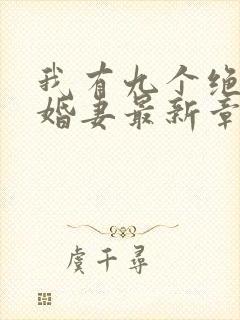 我有九个绝
婚妻最新章
虞千寻